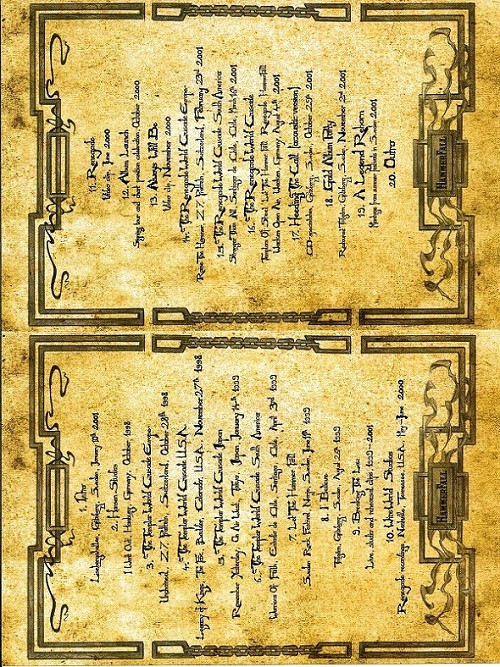 HAMMERFALL
1. Intro
Lisebergshallen, Göteborg, Sweden, January 1998, 2001
2. Heaven Studios
I Want Out, Göteborg, Germany, October, 1998
3. The Templar World Crusade Europe
Unchained, Z7, Pratteln, Switzerland, October 28th 1998
4. The Templar World Crusade U.S.A.
Legacy of Kings, The Fox, Boulder, Colorado, U.S.A., November 27th 1998
5. The Templar World Crusade Japan
Remember Yesterday, On Air West, Tokyo, Japan, January 14th 1999
6. The Templar World Crusade South America
Warriors Of Faith, Estadio de Chile, Santiago, Chile, April 3rd 1999
7. Let The Hammer Fall
Sweden Rock Festival, Norje, Sweden, June 1999
8. I Believe
Göteborg, Sweden, 1999
9. Breaking The Law
Live, studio and rehearsal clips, 1999-2001
10. Wire World Studios
Renegade recordings, Nashville, Tennessee, U.S.A., May-June 2000
HAMMERFALL
11. Renegade
Video clip, June 2000
12. Album Launch
Signing tour and chart position celebration, October 2000
13. Always Will Be
Video clip, November 2000
14. The Renegade World Crusade Europe
Raise The Hammer, Z7, Pratteln, Switzerland, February 23rd 2001
15. The Renegade World Crusade South America
Stronger Than All, Santiago de Chile, Chile, March 16th 2001
16. The Renegade World Crusade
Templars Of Steel, Let The Hammer Fall, Renegade, HammerFall
Wacken Open Air, Wacken, Germany, August 4th 2001
17. Hearts On Fire (acoustic version)
CD-presentation, Göteborg, Sweden, October 25th 2001
18. Gold Album Party
Restaurant Trägårn, Göteborg, Sweden, November 2nd 2001
19. A Legend Reborn
Meetings from summer festivals in Sweden 2001
20. Outro